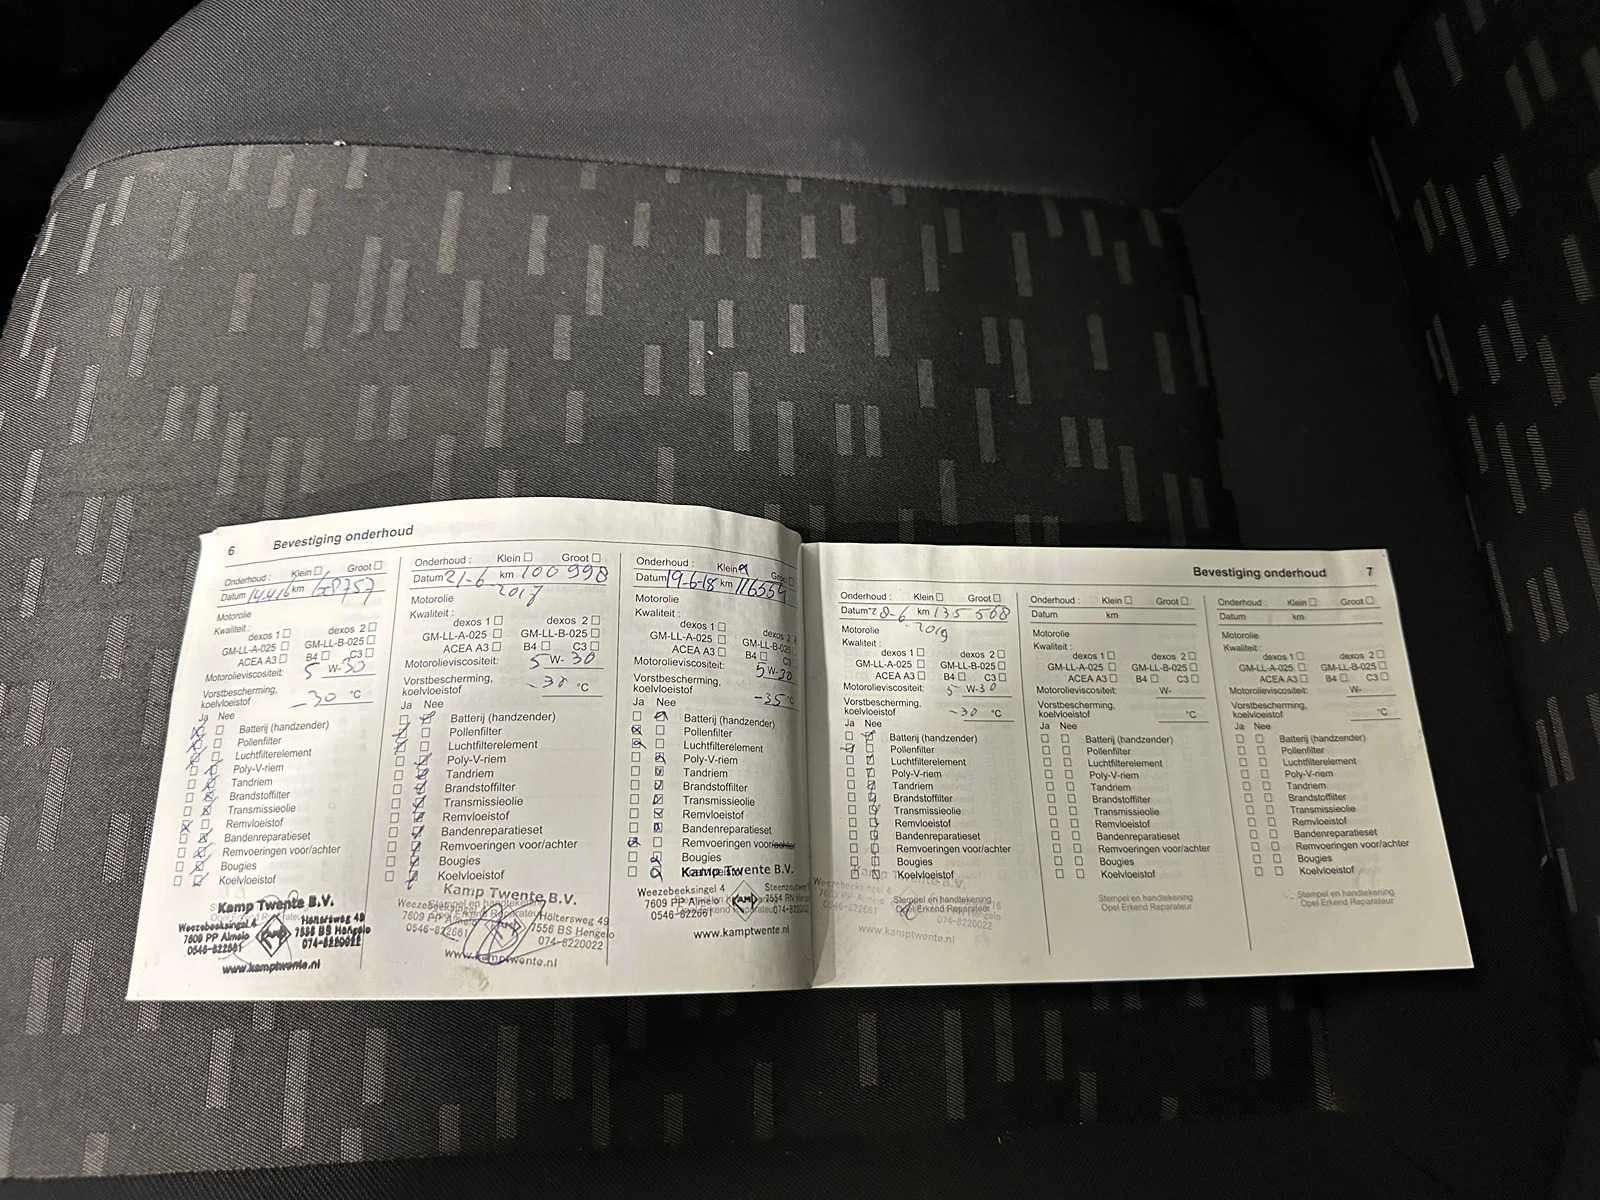 6 Bevestiging onderhoud
Onderhoud : Klein Groot
Datum 14-4-16 km
Motorolie
Kwaliteit :
dexos 1 dexos 2
GM-LL-A-025 GM-LL-B-025
ACEA A3 B4 C3
Motorolieviscositeit: 5 W-30
Vorstbescherming,
koelvloeistof -30 °C
Ja Nee
Batterij (handzender)
Pollenfilter
Luchtfilterelement
Poly-V-riem
Tandriem
Brandstoffilter
Transmissieolie
Remvloeistof
Bandenreparatieset
Remvoeringen voor/achter
Bougies
Koelvloeistof
Kamp Twente B.V.
Weezebeeksingel 4 Holtersweg 49
7609 PP Almelo KAMP 7556 BS Hengelo
0546-822661 074-8220022
www.kamptwente.nl
Onderhoud : Klein Groot
Datum 21-6 km 100 998
2017
Motorolie
Kwaliteit :
dexos 1 dexos 2
GM-LL-A-025 GM-LL-B-025
ACEA A3 B4 C3
Motorolieviscositeit: 5 W- 30
Vorstbescherming,
koelvloeistof -30 °C
Ja Nee
Batterij (handzender)
Pollenfilter
Luchtfilterelement
Poly-V-riem
Tandriem
Brandstoffilter
Transmissieolie
Remvloeistof
Bandenreparatieset
Remvoeringen voor/achter
Bougies
Koelvloeistof
Kamp Twente B.V.
Stempel en
Weezebeeksingel Holtersweg 49
7609 PP 7556 BS Hengelo
0546-822661 074-8220022
www.kamptwente.nl
Onderhoud : Klein Groot
Datum 19-6-18 km 116554
Motorolie
Kwaliteit :
dexos 1 dexos 2
GM-LL-A-025 GM-LL-B-025
ACEA A3 B4 C3
Motorolieviscositeit: 5 W-30
Vorstbescherming,
koelvloeistof -35 °C
Ja Nee
Batterij (handzender)
Pollenfilter
Luchtfilterelement
Poly-V-riem
Tandriem
Brandstoffilter
Transmissieolie
Remvloeistof
Bandenreparatieset
Remvoeringen voor/achter
Bougies
Koelvloeistof
Kamp Twente B.V.
Weezebeeksingel 4
7609 PP Almelo KAMP
0546-822661
www.kamptwente.nl
Bevestiging onderhoud 7
Onderhoud : Klein Groot
Datum 28-6 km 135 508
Motorolie - 2019
Kwaliteit :
dexos 1 dexos 2
GM-LL-A-025 GM-LL-B-025
ACEA A3 B4 C3
Motorolieviscositeit: 5 W-30
Vorstbescherming,
koelvloeistof -30 °C
Ja Nee
Batterij (handzender)
Pollenfilter
Luchtfilterelement
Poly-V-riem
Tandriem
Brandstoffilter
Transmissieolie
Remvloeistof
Bandenreparatieset
Remvoeringen voor/achter
Bougies
Koelvloeistof
Kamp Twente B.V.
Weezebeeksingel 4
Stempel en handtekening
Opel Erkend Reparateur
0546-822661 074-8220022
www.kamptwente.nl
Onderhoud : Klein Groot
Datum km
Motorolie
Kwaliteit :
dexos 1 dexos 2
GM-LL-A-025 GM-LL-B-025
ACEA A3 B4 C3
Motorolieviscositeit: W-
Vorstbescherming,
koelvloeistof °C
Ja Nee
Batterij (handzender)
Pollenfilter
Luchtfilterelement
Poly-V-riem
Tandriem
Brandstoffilter
Transmissieolie
Remvloeistof
Bandenreparatieset
Remvoeringen voor/achter
Bougies
Koelvloeistof
Stempel en handtekening
Opel Erkend Reparateur
Onderhoud : Klein Groot
Datum km
Motorolie
Kwaliteit :
dexos 1 dexos 2
GM-LL-A-025 GM-LL-B-025
ACEA A3 B4 C3
Motorolieviscositeit: W-
Vorstbescherming,
koelvloeistof °C
Ja Nee
Batterij (handzender)
Pollenfilter
Luchtfilterelement
Poly-V-riem
Tandriem
Brandstoffilter
Transmissieolie
Remvloeistof
Bandenreparatieset
Remvoeringen voor/achter
Bougies
Koelvloeistof
Stempel en handtekening
Opel Erkend Reparateur